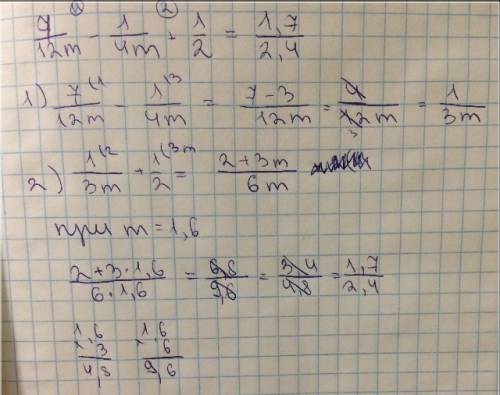 ① ②
7/12m - 1/4m + 1/2 = 1,7/2,4
1) 7⁽¹/12m - 1⁽³/4m = 7-3/12m = 4/12m = 1/3m
3
2) 1⁽²/3m + 1⁽³ᵐ/2 = 2+3m/6m
при m = 1,6
2+3·1,6/6·1,6 = 6,8/9,6 = 3,4/4,8 = 1,7/2,4
1,6 1,6
× 3 × 6
4,8 9,6